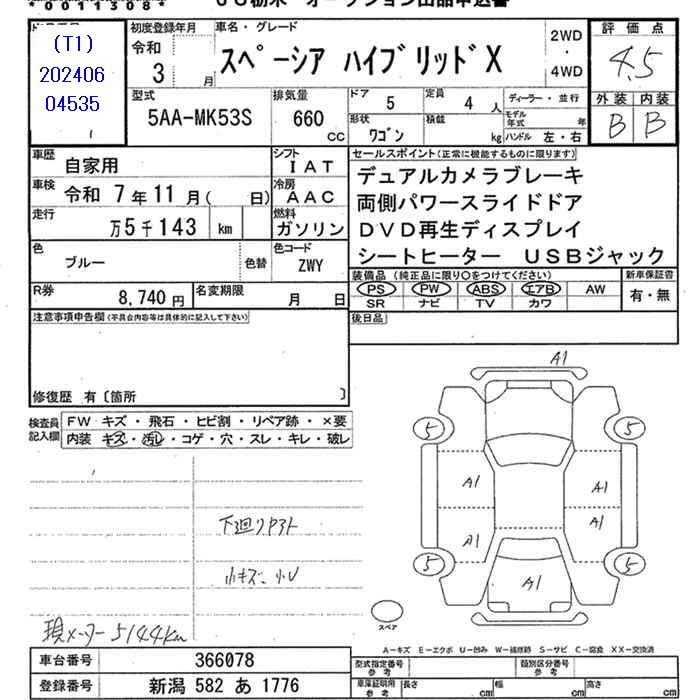 *0011308*
UU栃木 オークション出品申込書
(T1)
202406
04535
初度登録年月
令和
3 月
車名・グレード
スペーシア ハイブリッドX
2WD
・
4WD
評価点
4.5
外装 内装
B B
型式
5AA-MK53S
排気量
660
CC
ドア
5
定員
4 人
形状
ワゴン
積載
kg
ディーラー・並行
モデル年式 年
ハンドル 左・右
車歴
自家用
シフト
IAT
車検
令和 7 年 11 月( 日)
冷房
AAC
走行
万5千143 km
燃料
ガソリン
色
ブルー
色替
色コード
ZWY
R券
8,740 円
名変期限
月 日
セールスポイント(正常に機能するものに限ります)
デュアルカメラブレーキ
両側パワースライドドア
DVD再生ディスプレイ
シートヒーター USBジャック
装備品(純正品に限り○をつけてください)
PS PW ABS エアB AW
SR ナビ TV カワ
新車保証書
有・無
注意事項申告欄(不具合内容等は具体的に記入して下さい)
後日品
修復歴 有〔箇所 〕
検査員
記入欄
FW キズ・飛石・ヒビ割・リペア跡・×要
内装 キズ・汚れ・コゲ・穴・スレ・キレ・破レ
下廻りサスト
小キズ、小U
現メーター5144km
A1
5 5
A1 A1
A1 A1
5 5
A1
スペア
A-キズ E-エクボ U-凹み W-補修跡 S-サビ C-腐食 XX-交換済
車台番号
366078
登録番号
新潟 582 あ 1776
型式指定番号
参考
類別区分番号
参考
車庫証明用
参考
長さ cm
幅 cm
高さ cm